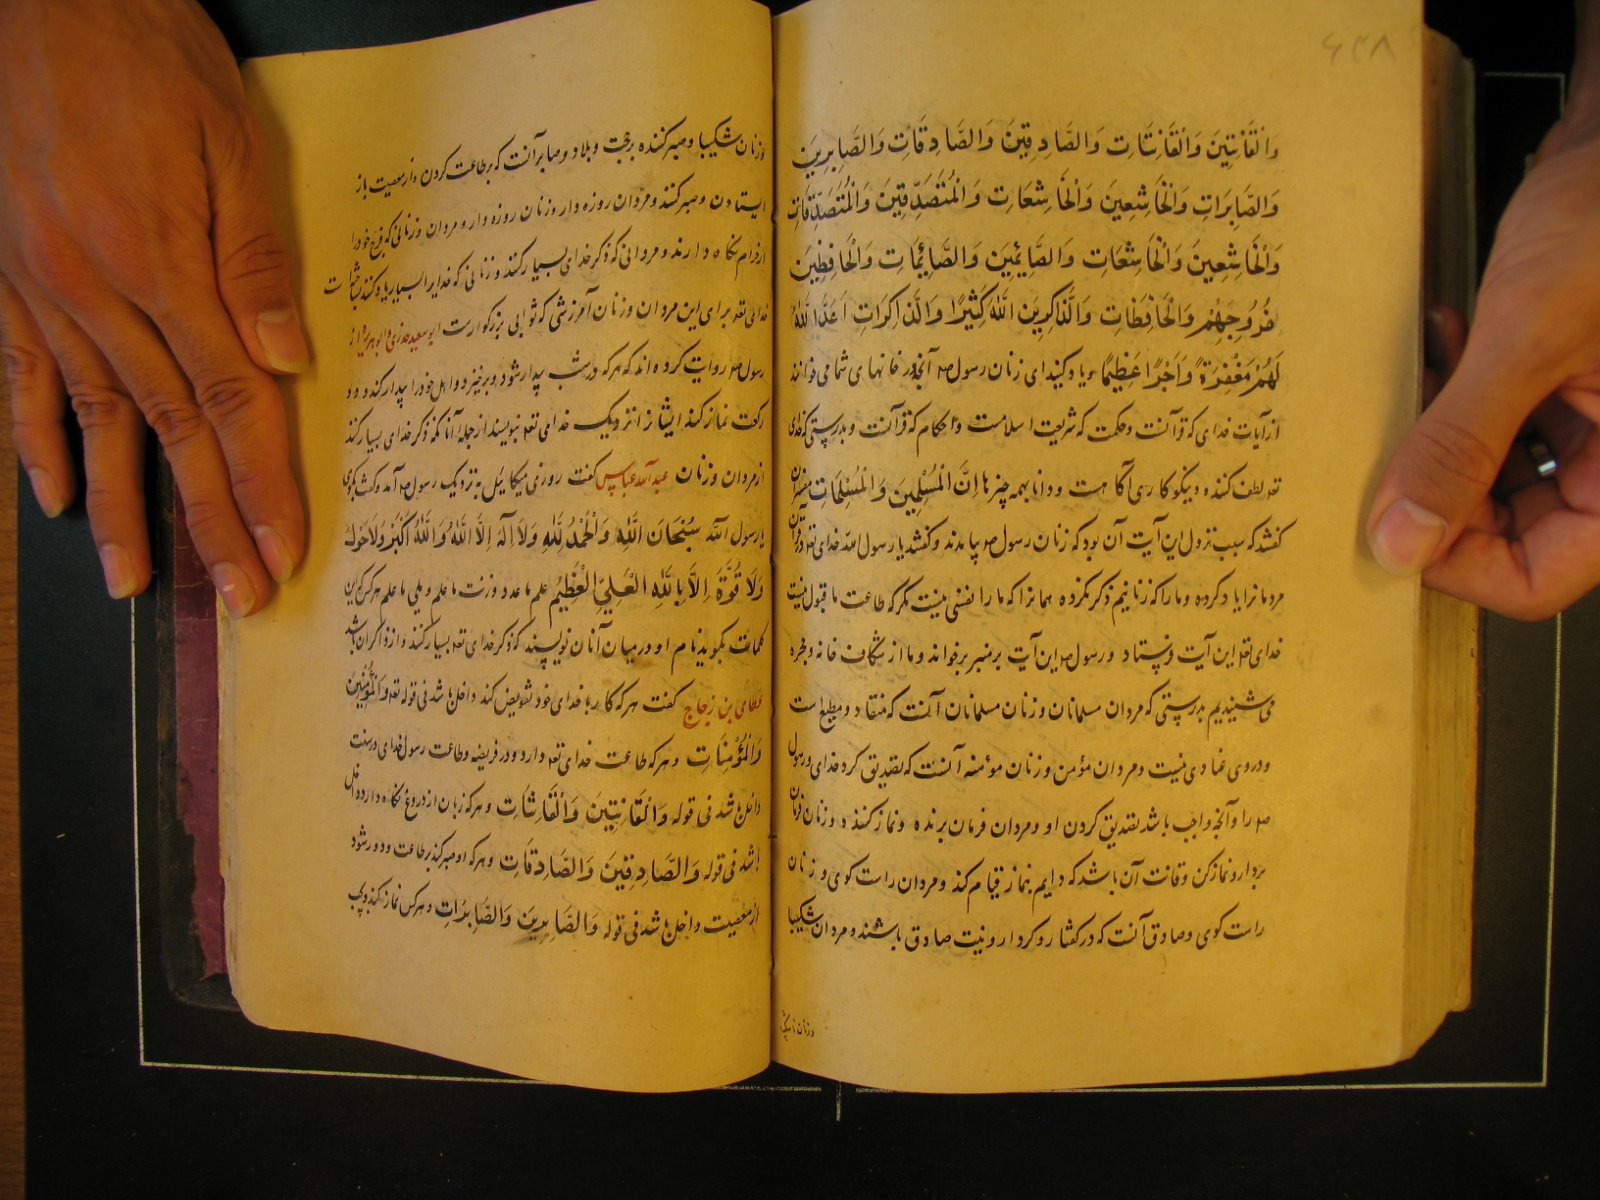 ۶۳۸
وَالْقَانِتِينَ وَالْقَانِتَاتِ وَالصَّادِقِينَ وَالصَّادِقَاتِ وَالصَّابِرِينَ
وَالصَّابِرَاتِ وَالْخَاشِعِينَ وَالْخَاشِعَاتِ وَالْمُتَصَدِّقِينَ وَالْمُتَصَدِّقَاتِ
وَالْخَاشِعِينَ وَالْخَاشِعَاتِ وَالصَّائِمِينَ وَالصَّائِمَاتِ وَالْحَافِظِينَ
فُرُوجَهُمْ وَالْحَافِظَاتِ وَالذَّاكِرِينَ اللَّهَ كَثِيرًا وَالذَّاكِرَاتِ اَعَدَّ اللَّهُ
لَهُمْ مَغْفِرَةً وَاَجْرًا عَظِيمًا ویاد کنید ای زنان رسول صه آنچه در خانهای شما می خوانند
از آیات خدای که قرآنست وحکمت که شریعت اسلامست واحکام که قرآنست وبدرستی که خدای
تعه لطف کننده ونیکو کارست آگاهست ودانا بهمه چیزها اِنَّ الْمُسْلِمِينَ وَالْمُسْلِمَاتِ مفسران
گفتند که سبب نزول این آیت آن بود که زنان رسول صه بیامدند وگفتند یا رسول الله خدای تعه در قرآن
مردمانرا یاد کرده وما را که زنانیم ذکر نکرده همانرا که ما را نفسی نیست مگر که طاعت ما قبول نیست
خدای تعه این آیت فرستاد ورسول صه این آیت بر منبر برخواند وما از شکاف خانه وحجره
می شنیدیم بدرستی که مردان مسلمانان وزنان مسلمانان آنست که منقاد ومطیع است
ودروی عنادی نیست ومردان مؤمن وزنان مؤمنه آنست که تصدیق کرد خدای ورسول
صه را وآنچه واجب باشد تصدیق کردن او ومردان فرمان برنده ونماز کننده وزنان فرمان
بردار ونماز کن وقانت آن باشد که دایم بنماز قیام کند ومردان راست گوی وزنان
راست گوی وصادق آنست که در گفتار وکردار ونیت صادق باشند ومردان شکیبا
وزنان شکیبا
وزنان شکیبا وصبر کننده برمحنت وبلا وصابر آنست که بر طاعت کردن واز معصیت باز
ایستادن وصبر کنند ومردان روزه دار وزنان روزه دار ومردان وزنانی که فرج خود را
از حرام نگاه دارند ومردانی که ذکر خدای بسیار کنند وزنانی که خدایرا بسیار یاد کنند
خدای تعه برای این مردان وزنان آمرزشی که ثوابی بزرگوارست ابو سعید خدری وابو هریره از
رسول صه روایت کرده اند که هر که در شب بیدار شود وبرخیزد واهل خود را بیدار کند ودو
رکعت نماز کند ایشانرا نزدیک خدای تعه بنویسند از جمله آنانکه ذکر خدای بسیار کنند
از مردان وزنان عبدالله عباس گفت روزی میکائیل به نزدیک رسول صه آمد وگفت بگوی
یا رسول الله سُبْحَانَ اللَّهِ وَالْحَمْدُ لِلَّهِ وَلَا اِلَهَ اِلَّا اللَّهُ وَاللَّهُ اَكْبَرُ وَلَا حَوْلَ
وَلَا قُوَّةَ اِلَّا بِاللَّهِ الْعَلِيِّ الْعَظِيمُ علم ما عدد وزنت ما علم وملی ما علم هر کس که این
کلمات بگوید نام او در میان آنان نویسند که ذکر خدای تعه بسیار کنند واز ذاکران باشد
عطای بن زجاج گفت هر که کارها خدای خود تفویض کند داخل باشد فی قوله تعه وَالْمُؤْمِنِينَ
وَالْمُؤْمِنَاتِ وهر که طاعت خدای تعه دارد ودر فریضه وطاعت رسول خدای در سنت
داخل باشد فی قوله وَالْقَانِتِينَ وَالْقَانِتَاتِ وهر که زبان از دروغ نگاه دارد داخل
باشد فی قوله وَالصَّادِقِينَ وَالصَّادِقَاتِ وهر که او صبر کند بر طاعت ودور شود
از معصیت داخل باشد فی قوله وَالصَّابِرِينَ وَالصَّابِرَاتِ وهر کس نماز کند